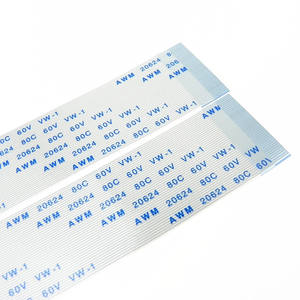 AWM 20624 8
AWM AWM 206
60V VW-1
80C 60V VW-1
20624 80C 60V VW-1
AWM 20624 80C 60V VW-1
AWM 20624 80C 60V VW-1
AWM 20624 80C 60V VW-1
AWM
AWM 20624 80C 60V VW-1
AWM 20624 80C 60V VW-1
AWM 20624 80C 60V VW
AWM 20624 80C 60V
VW-1
VW-1
VW-1